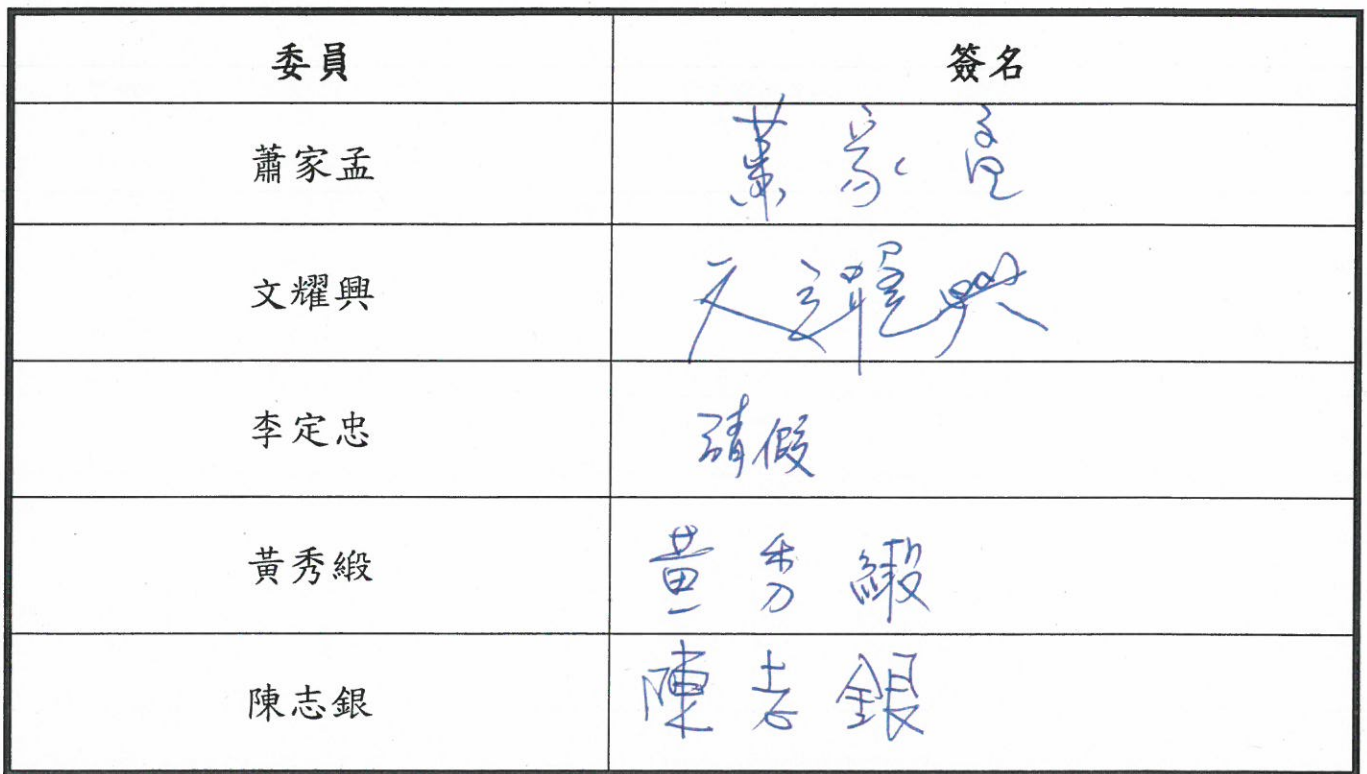 委員 簽名
蕭家孟 蕭家孟
文耀興 文耀興
李定忠 請假
黃秀緞 黃秀緞
陳志銀 陳志銀